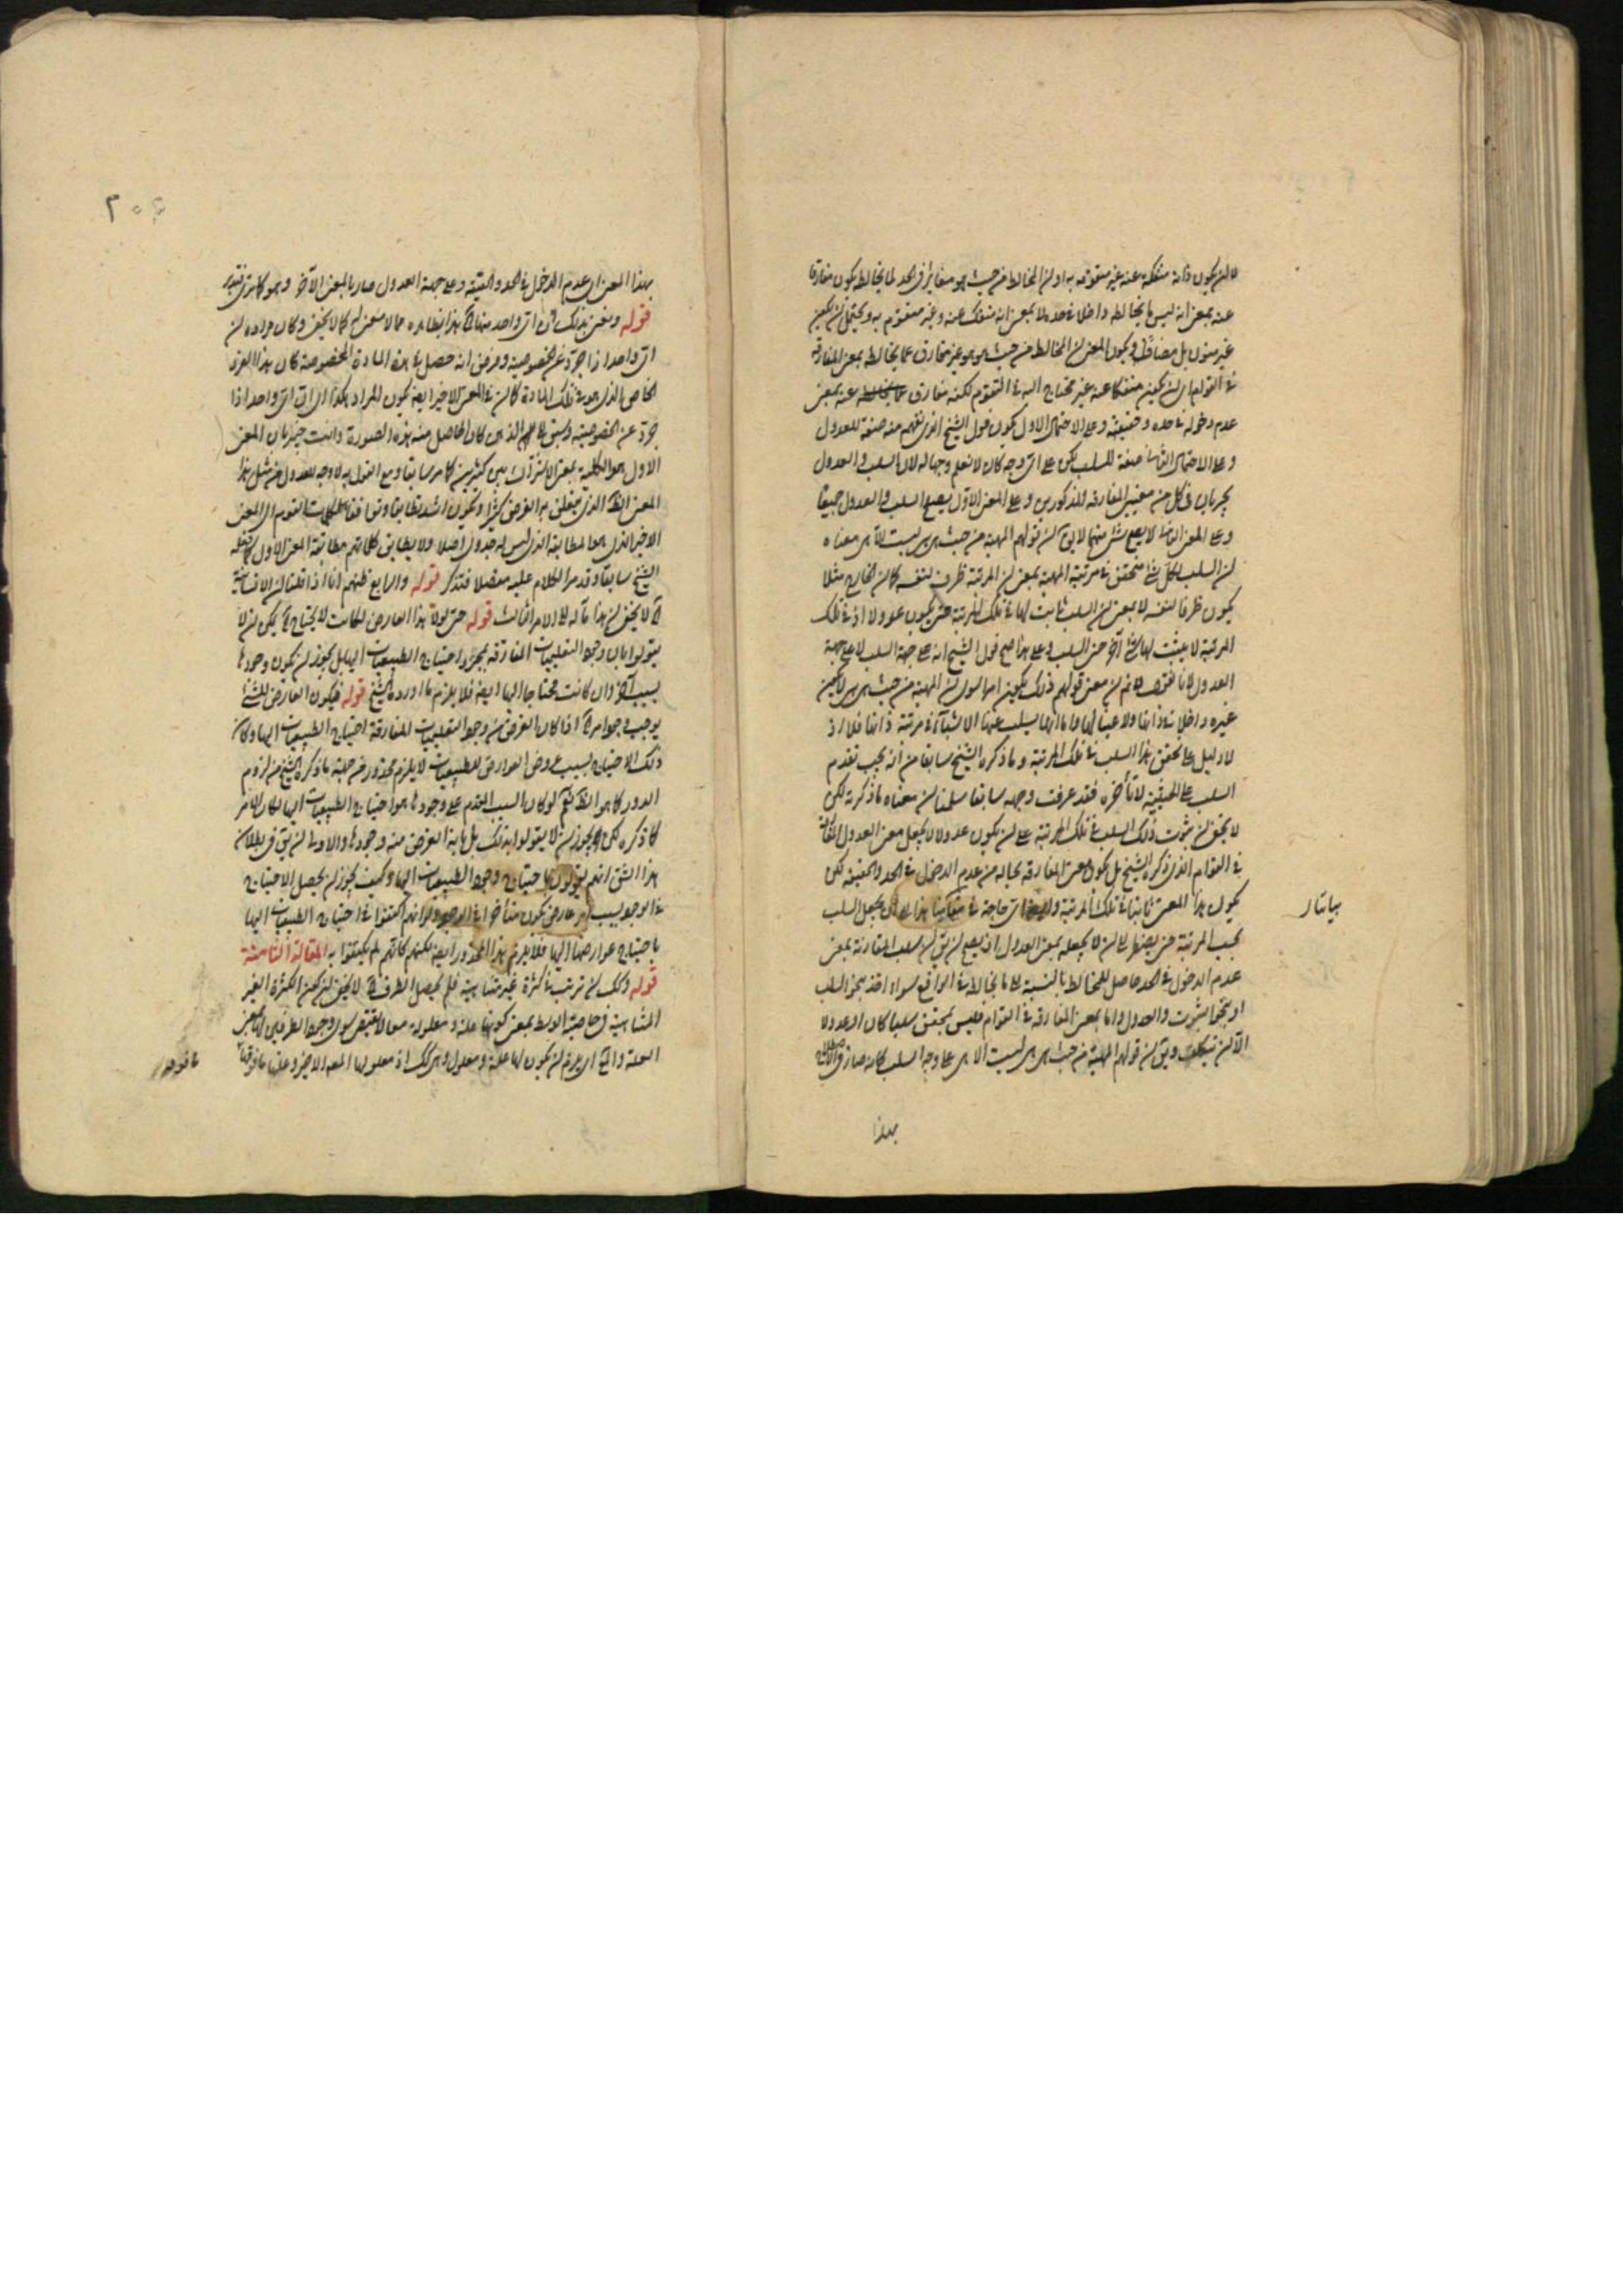 لا ان يكون ذاته منفكة عنه غير متقومه به او ان المخالط من حيث هو مغاير في الحد لما يخالطه يكون مفارقا
عنه بمعنى انه ليس ما يخالطه داخلا في حده لا بمعنى انه منفك عنه وغير متقوم به ويحتمل ان يكون
غير منون بل مضافا ويكون المعنى ان المخالط من حيث هو هو غير مفارق عما يخالطه بمعنى المفارقة
في القوام اي ان يكون منفكا عنه غير محتاج اليه في التقوم لكنه مفارق عنه بمعنى
عدم دخوله في حده وحقيقته وعلى الاحتمال الاول يكون قول الشيخ الذي نفهم منه صفة للعدول
وعلى الاحتمال الثاني صفة للسلب لكن على اي وجه كان لا نعلم وجها له لان السلب والعدول
يجريان في كل من معنيي المفارقة المذكورين وعلى المعنى الاول يصح السلب والعدول جميعا
وعلى المعنى الثاني لا يصح شيء منهما لا يق ان قولهم المهية من حيث هي هي ليست الا هي معناه
ان السلب لكل شيء متحقق في مرتبة المهية بمعنى ان المرتبة ظرف لنفسه كما ان الخارج مثلا
يكون ظرفا لنفسه لا بمعنى ان السلب ثابت لها في تلك المرتبة حتى يكون عدولا اذ في تلك
المرتبة لا يثبت لها شيء آخر حتى السلب وعلى هذا صح قول الشيخ انه على جهة السلب لا على جهة
العدول لانا نقول لانم ان معنى قولهم ذلك بكون امرا سوى ان المهية من حيث هي هي لا يكون
غيره داخلا في ذاتها ولا عينا لها واما انها يسلب عنها الاشياء في مرتبة ذاتها فلا اذ
لا دليل على تحقق هذا السلب في تلك المرتبة وما ذكره الشيخ سابقا من انه يجب تقدم
السلب على الحيثية لا تأخره فقد عرفت وجهه سابقا سلمنا ان معناه ما ذكرته لكن
لا يخفى ان ثبوت ذلك السلب في تلك المرتبة على ان يكون عدولا لا يجعل معنى العدول
في القوام الذي ذكره الشيخ بل يكون معنى المفارقة بحاله من عدم الدخول في الحد والحقيقة لكن
يكون هذا المعنى ثابتا في تلك المرتبة واي حاجة في مقامنا هذا الى ان يجعل السلب
بحسب المرتبة حتى يضطر الى ان لا يجعله بمعنى العدول اذ يصح ان يق ان سلب المقارنة بمعنى
عدم الدخول في الحد حاصل للمخالط بالنسبة الى ما يخالطه في الواقع سواء اخذ بنحو السلب
او بنحو الثبوت والعدول واما بمعنى المفارقة في القوام فليس بمتحقق سلبا كان او عدولا
الا ان يتكلف ويق ان قولهم المهية من حيث هي هي ليست الا هي على وجه السلب كانه صار في الاصطلاح
بهذا
بهذا المعنى اي عدم الدخول في الحد والحقيقة وعلى جهة العدول صار بالمعنى الآخر وهو كما ترى فتدبر
قوله ونعني بذلك ان اي واحد منها آه هذا بظاهره مما لا معنى له كما لا يخفى وكان مراده ان
اي واحد اذا جرد عن خصوصيته وفرض انه حصل في هذه المادة المخصوصة كان هذا الفرد
الخاص الذي هو في تلك المادة كما ان في المعنى الاخير ايضا يكون المراد هكذا اي ان اي واحد اذا
جرد عن الخصوصية وسبق الى الذهن كان الحاصل منه هذه الصورة وانت خبير بان المعنى
الاول هو الكلية بمعنى الاشتراك بين كثيرين كما مر سابقا ومع القول به لا وجه للعدول عن مثل هذا
المعنى الظ الذي يتعلق به الغرض كثيرا ويكون اشد تطابقا وتوافقا لكلمات القوم الى المعنى
الاخير الذي هو المطابقة الذي ليس له جدوى اصلا ولا يطابق كلماتهم مطابقة المعنى الاول كما نقله
الشيخ سابقا وقد مر الكلام عليه مفصلا فتذكر قوله والرابع ظنهم انا اذا قلنا ان الانسانية
آه لا يخفى ان هذا مآله الى الامر الثالث قوله حتى لولا هذا العارض لكانت لا يحتاج آه يمكن ان لا
يقولوا بان وجود التعليميات المفارقة بمجرد احتياج الطبيعيات اليها بل يجوز ان يكون وجودها
بسبب آخر وان كانت محتاجا اليها ايضا فلا يلزم ما اورده الشيخ قوله فيكون العارض للشيء
يوجب وجود امر آه اذا كان الغرض من وجود التعليميات المفارقة احتياج الطبيعيات اليها وكان
ذلك الاحتياج بسبب عروض العوارض للطبيعيات لا يلزم محذور من جملة ما ذكره الشيخ من لزوم
الدور كما هو الظ نعم لو كان السبب المقدم على وجودها هو احتياج الطبيعيات اليها لكان الامر
كما ذكره لكن يجوز ان لا يقولوا بذلك بل غاية الغرض منه وجودها والاولى ان يق في بطلان
هذا الشق انهم يقولون باحتياج وجود الطبيعيات اليها وكيف يجوز ان يحصل الاحتياج
في الوجود بسبب امر عارض يكون متأخرا في الوجود ولو انهم اكتفوا في احتياج الطبيعيات اليها
باحتياج عوارضها اليها فلا يلزم هذا المحذور ايضا لكنهم كانهم لم يكتفوا به المقالة الثامنة
قوله وكك ان ترتب في كثرة غير متناهية فلم يحصل الطرف آه لا يخفى ان كون الكثرة الغير
المتناهية في خاصية الوسط بمعنى كونها علة ومعلولة معا لا يقتضي سوى وجود الطرفين اي بمعنى
العلة والمع اي يلزم ان يكون لها علة ومعلول وهي كك اذ معلولها المعلول الاخير وعلتها ما فوقها